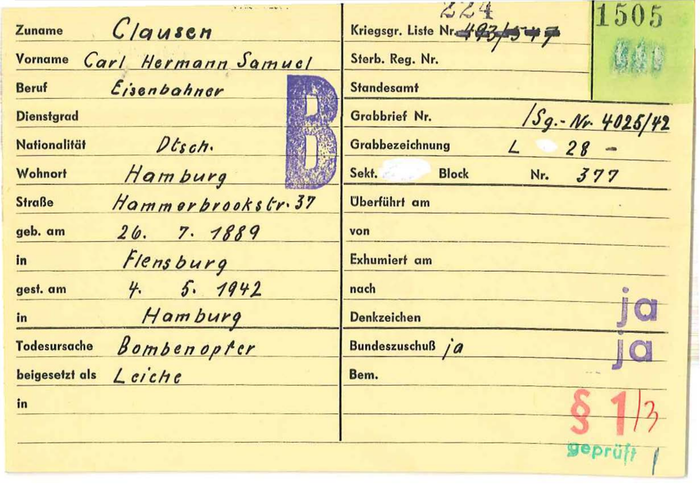 Zuname Clausen
Vorname Carl Hermann Samuel
Beruf Eisenbahner
Dienstgrad
Nationalität Dtsch.
Wohnort Hamburg
Straße Hammerbrookstr. 37
geb. am 26. 7. 1889
in Flensburg
gest. am 4. 5. 1942
in Hamburg
Todesursache Bombenopfer
beigesetzt als Leiche
in
B
224
Kriegsgr. Liste Nr. 493/547
Sterb. Reg. Nr.
Standesamt
Grabbrief Nr. /Sg.-Nr. 4025/42
Grabbezeichnung L 28 -
Sekt. Block Nr. 377
Überführt am
von
Exhumiert am
nach
Denkzeichen ja
Bundeszuschuß ja ja
Bem.
1505
§ 1/3
geprüft